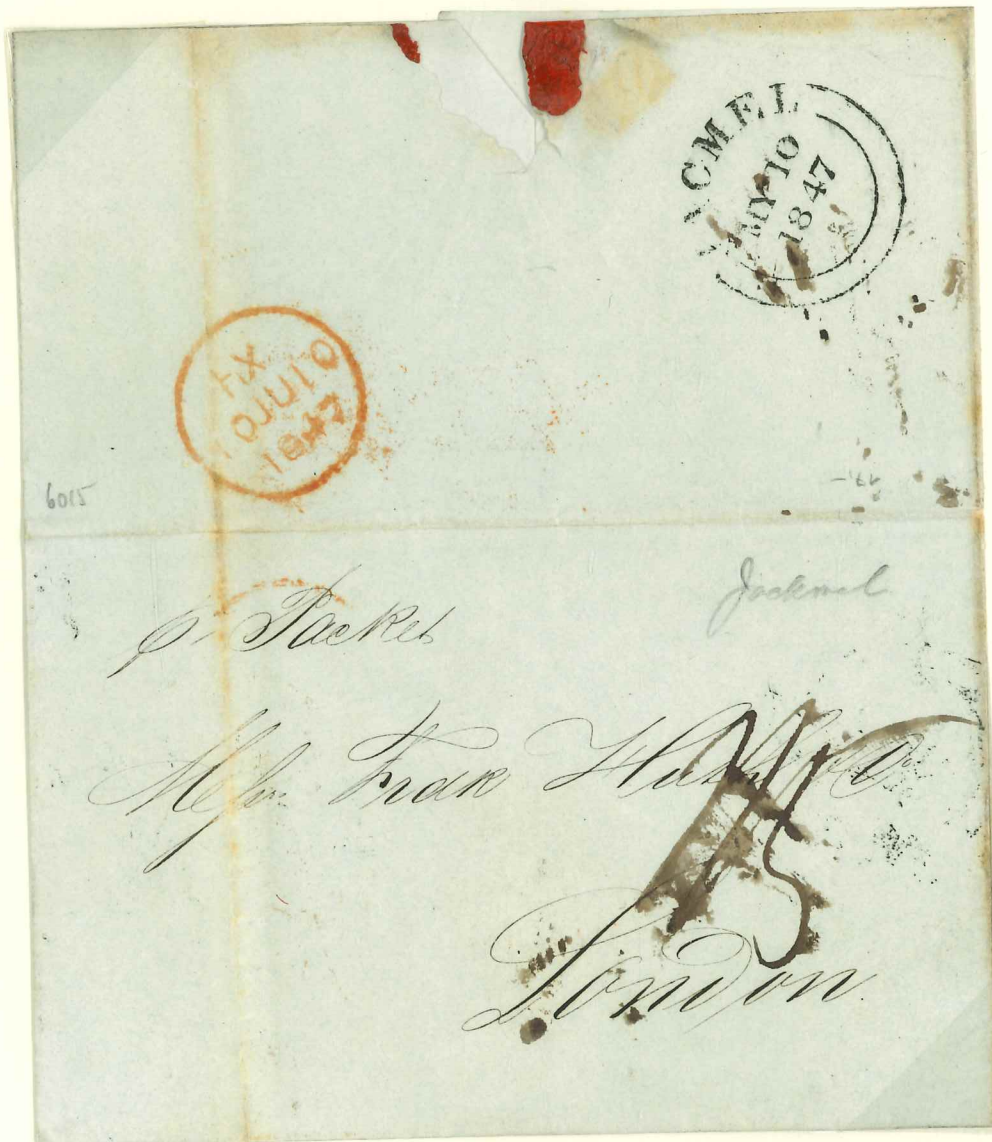 JACMEL
MY 10
1847
XY
10 JU 10
1847
6015
Jackmel
pr Packet
Messrs Fred Huth & Co
1/5
London